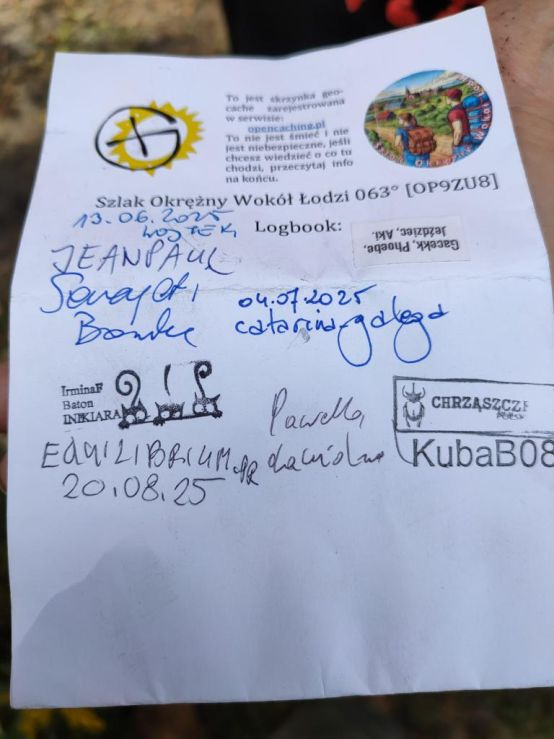 To jest skrzynka geo-
cache zarejestrowana
w serwisie:
opencaching.pl
To nie jest śmieć i nie
jest niebezpieczne, jeśli
chcesz wiedzieć o co tu
chodzi, przeczytaj info
na końcu.
Szlak Okrężny Wokół Łodzi 063° [OP9ZU8]
13.06.2025
WOJTEK,
Logbook:
Gacekk, Phoebe,
Jeździec, Aki.
JEANPAUL
04.07.2025
catarina-galega
IrminaF
Baton
INIKIARA
Pawełka
CHRZĄSZCZE
KubaB08
EQUILIBRIUM
20.08.25